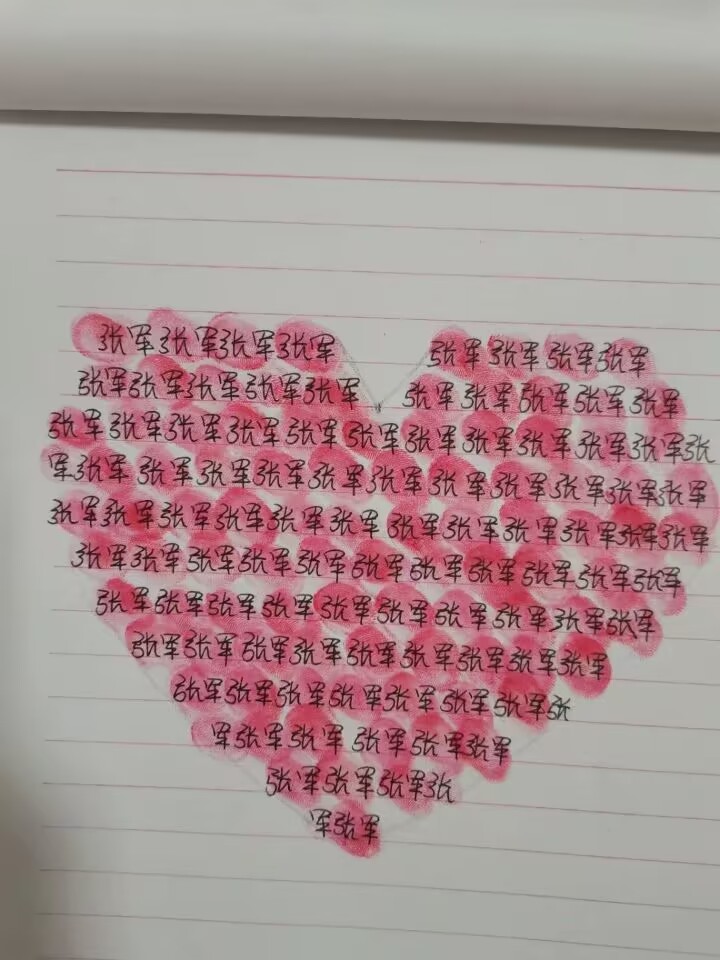 张军张军张军张军 张军张军张军张军
张军张军张军张军张军 张军张军张军张军张军
张军张军张军张军张军张军张军张军张军张军张军张
军张军张军张军张军张军张军张军张军张军张军张军
张军张军张军张军张军张军张军张军张军张军张军张军
张军张军张军张军张军张军张军张军张军张军张军
张军张军张军张军张军张军张军张军张军张军
张军张军张军张军张军张军张军张军张军
张军张军张军张军张军张军张军张
军张军张军张军张军张军
张军张军张军张
军张军